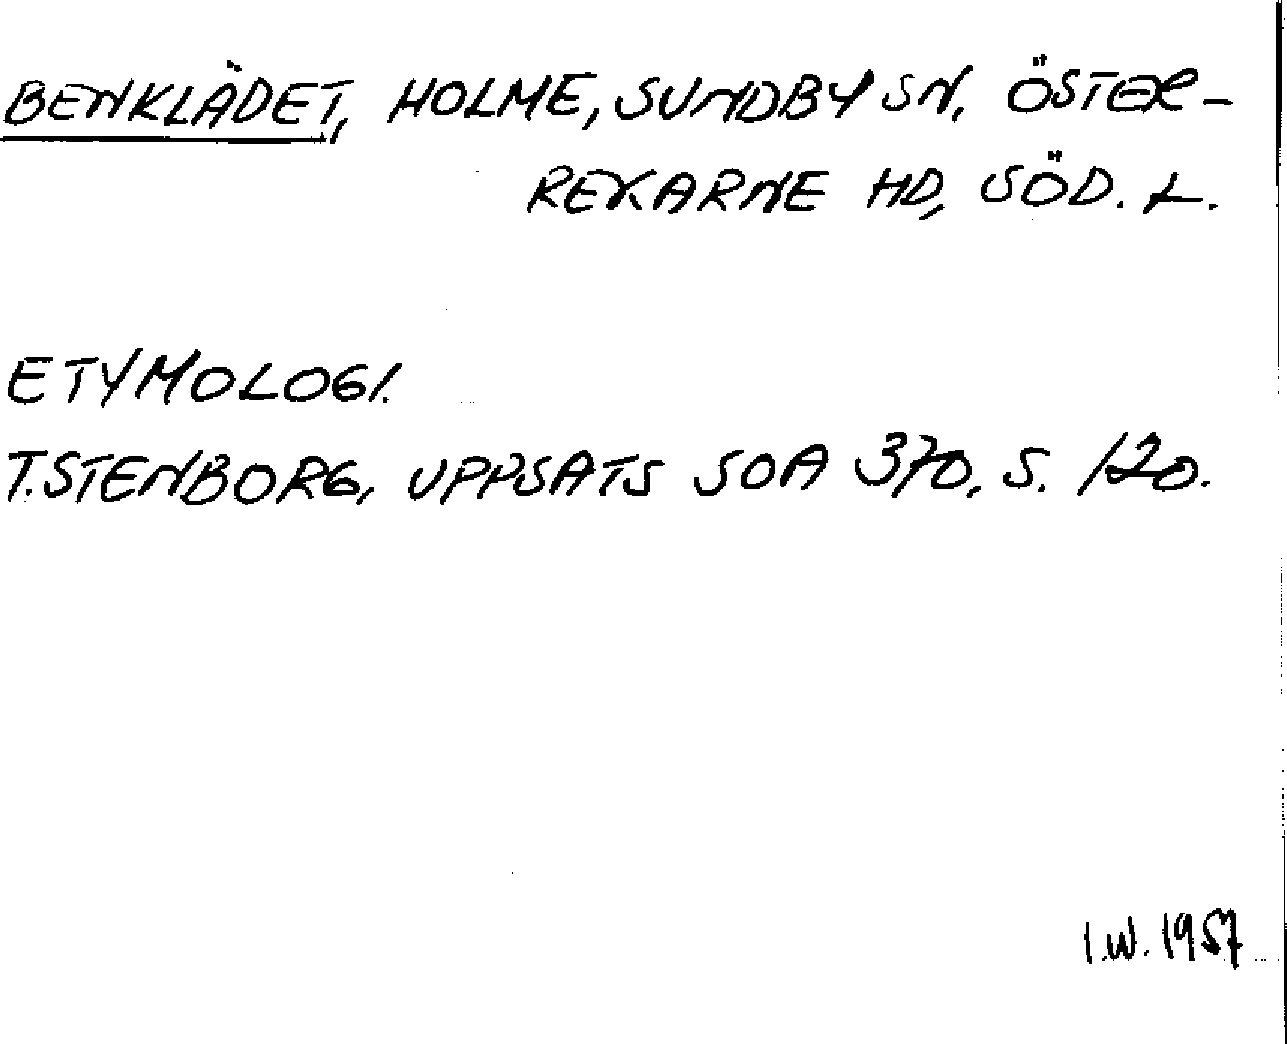 BENKLÄDET, HOLME, SUNDBY SN, ÖSTER-
REKARNE HD, SÖD. L.
ETYMOLOGI.
T. STENBORG, UPPSATS SOA 370, S. 120.
I.W. 1957